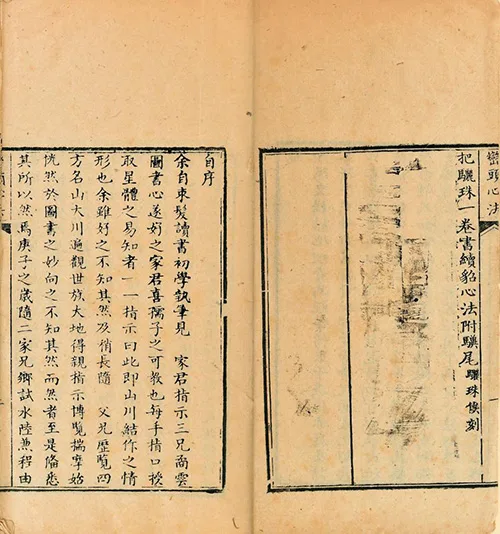 巒頭心法
把驪珠一卷書續貂心法附驥尾 驪珠俟刻
自序
余自束髮讀書初學執筆見 家君指示三兄商雲
圖書心遂好之家君喜孺子之可教也每手指口授
取星體之易知者一一指示曰此即山川結作之情
形也余雖好之不知其然及稍長隨 父兄歷覽四
方名山大川遍觀世族大地得親指示博覽揣摩始
恍然於圖書之妙向之不知其然而然者至是俻悉
其所以然焉庚子之歲隨二家兄鄉試水陸兼程由